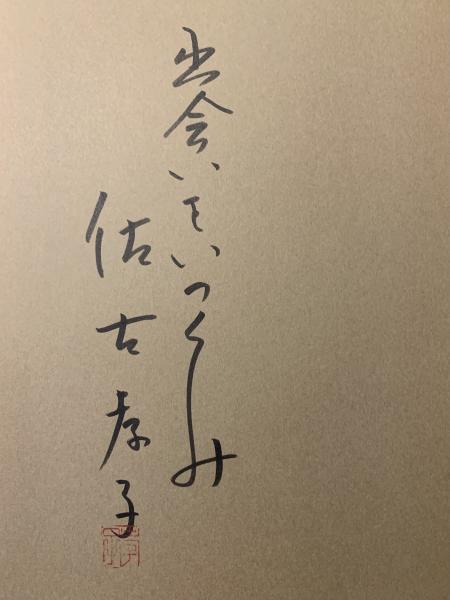 出会いをいつくしみ
佐古孝子